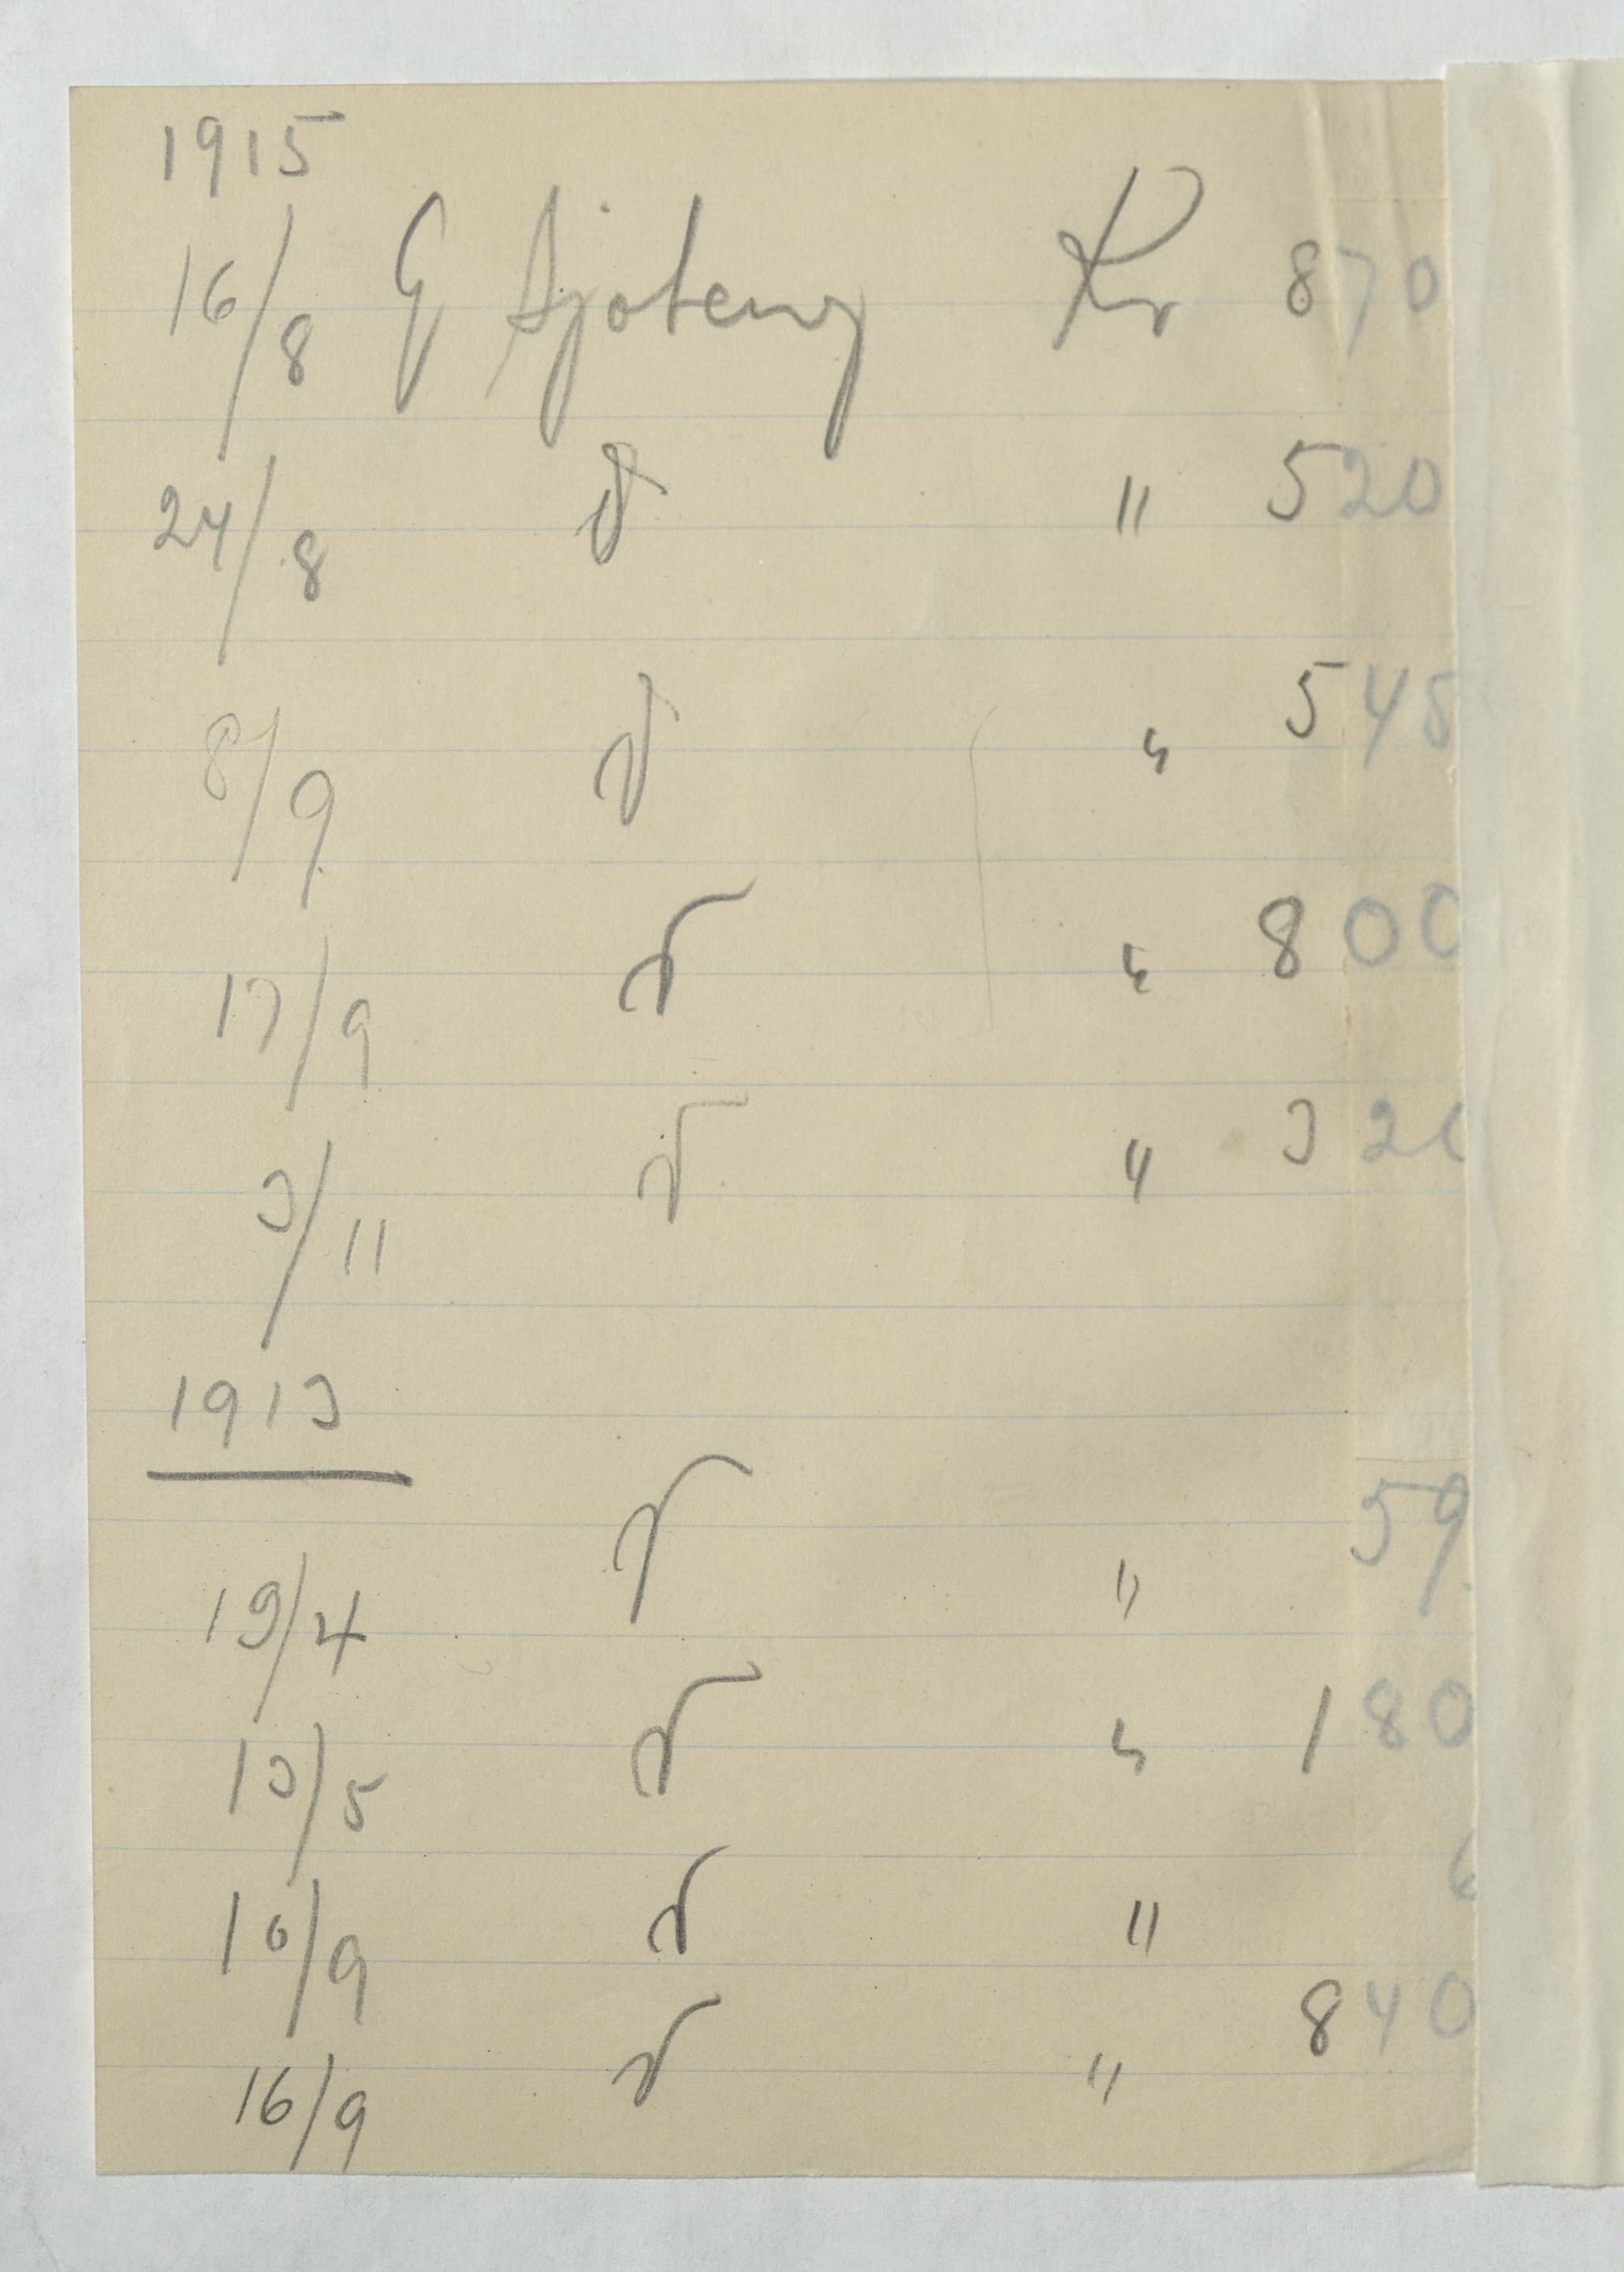 1915
16/8 G Sjöteng Kr 870
24/8 d " 520
8/9 d " 545
17/9 d " 800
3/11 d " 320
1913
19/4 d " 59
13/5 d " 180
10/9 d "
16/9 d " 840